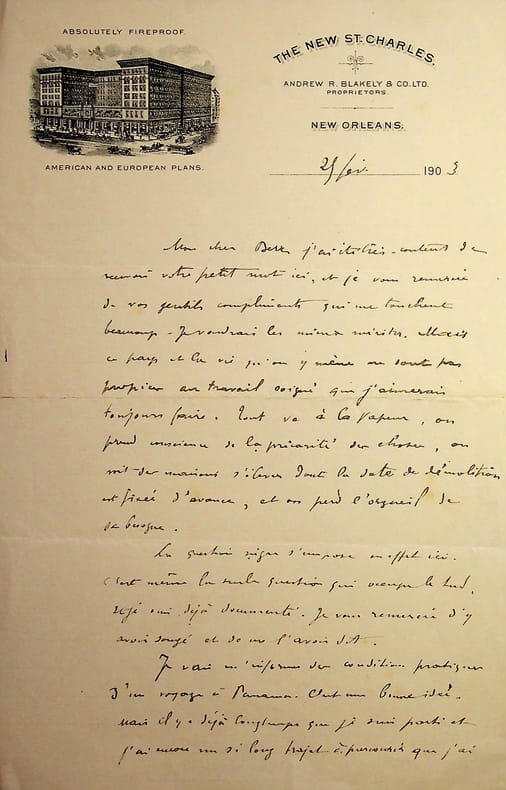 ABSOLUTELY FIREPROOF.
AMERICAN AND EUROPEAN PLANS.
THE NEW ST. CHARLES.
ANDREW R. BLAKELY & CO. LTD.
PROPRIETORS.
NEW ORLEANS.
fév. 1903
Mon cher j'ai été très content de
recevoir votre petit mot ici, et je vous remercie
de vos gentils compliments qui me touchent
beaucoup. Je voudrais les mieux mériter. Mais
ce pays et la vie qu'on y mène ne sont pas
propices au travail soigné que j'aimerais
toujours faire. Tout va à la vapeur, on
prend conscience de la précarité des choses, on
voit des maisons s'élever dont la date de démolition
est fixée d'avance, et on perd l'orgueil de
sa besogne.
La question nègre s'impose en effet ici.
C'est même la seule question qui occupe le Sud.
déjà documenté. Je vous remercie d'y
avoir songé et de me l'avoir dit.
Je vais m'informer des conditions pratiques
d'un voyage à Panama. C'est une bonne idée.
Mais il y a déjà longtemps que je suis parti et
j'ai encore un si long trajet à parcourir que j'ai